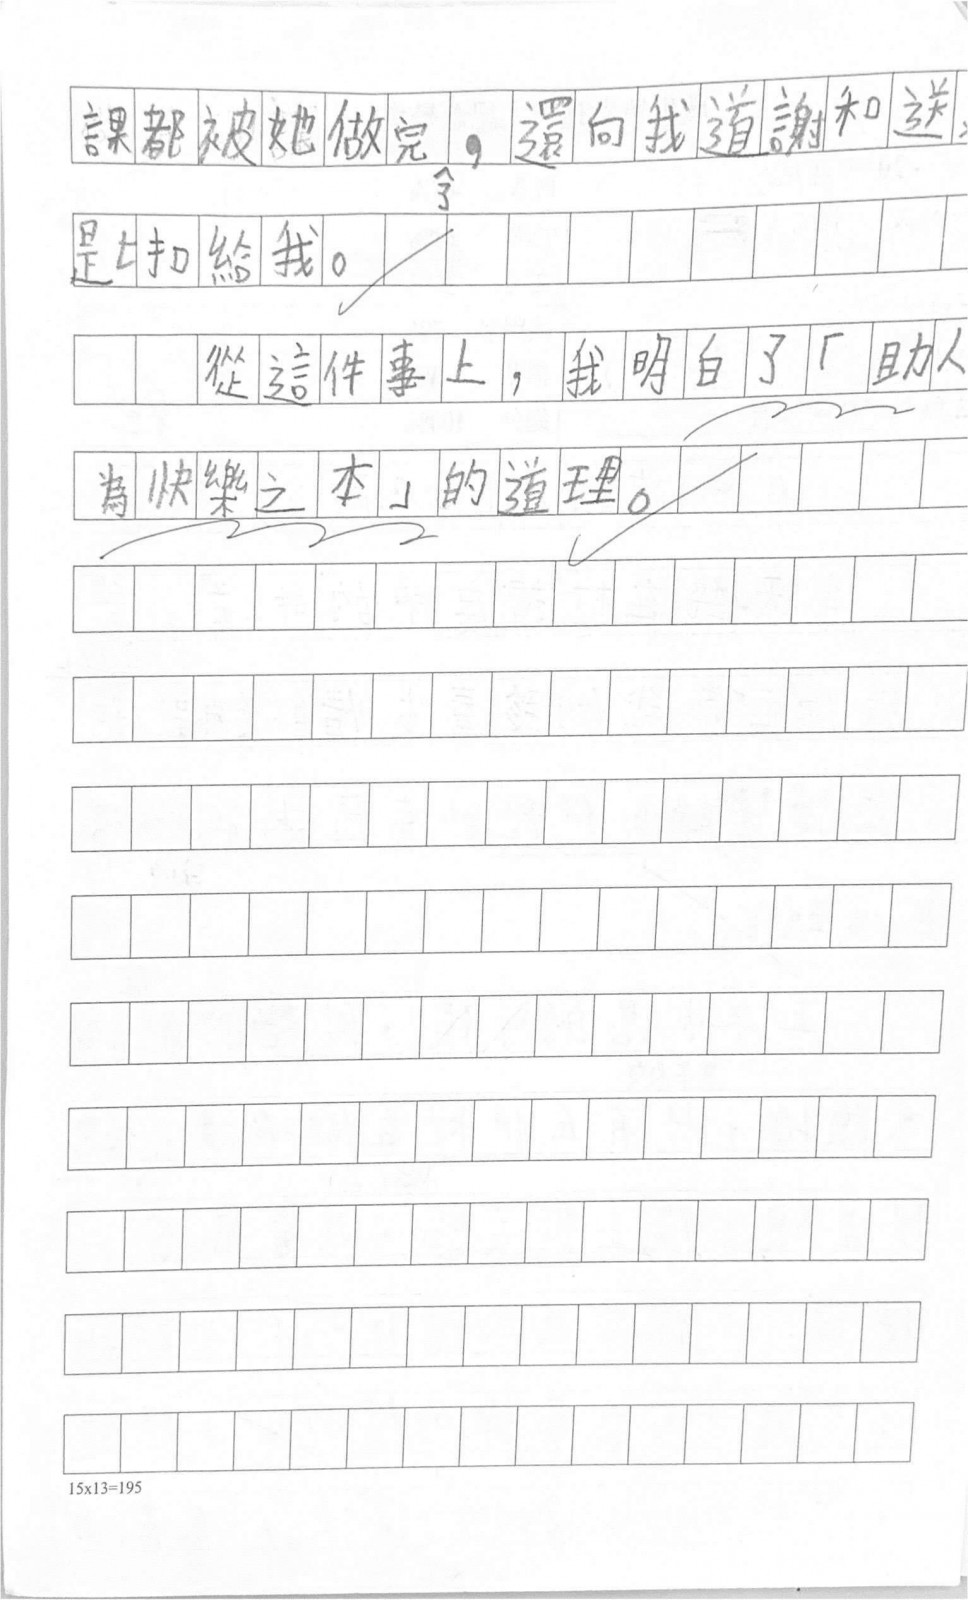 課都被她做完，還向我道謝和送
了
是扣給我。
從這件事上，我明白了「助人
為快樂之本」的道理。
15x13=195